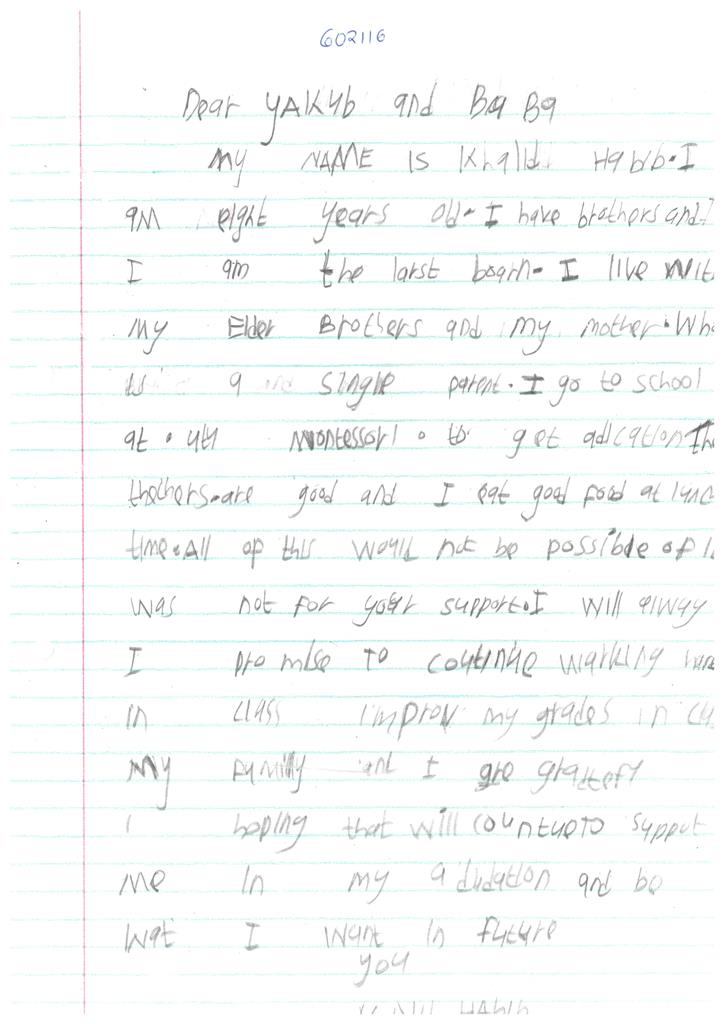 602116
Dear YAKUb and Ba Ba
my NAME is Khalid Habib. I
am eight years old. I have brothers and
I am the larst boarn. I live wit
my Elder Brothers and my mother. Wh
is a single parent. I go to school
at Montessori to get adication The
are good and I eat good food at lunc
time. All of this would not be possible of i
was not for your support. I will alway
I promise to coutinue warking hard
in class improv my grades in cl
My Family and I are
I hoping that will countueTo support
me in my and be
wat I want in future
you
Habib